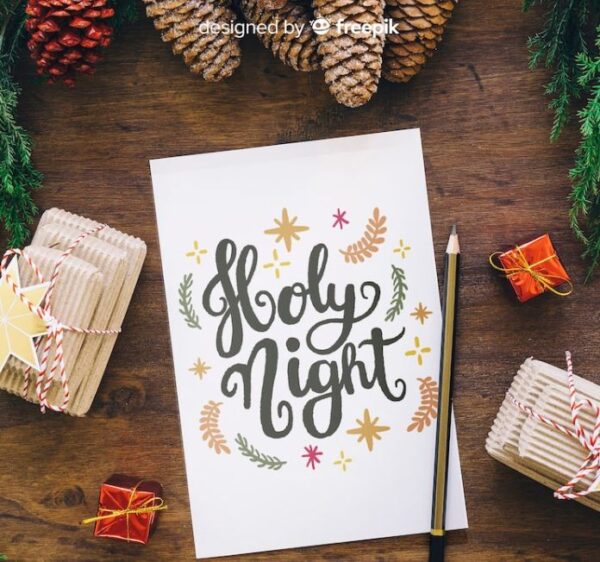 designed by freepik
Holy
Night